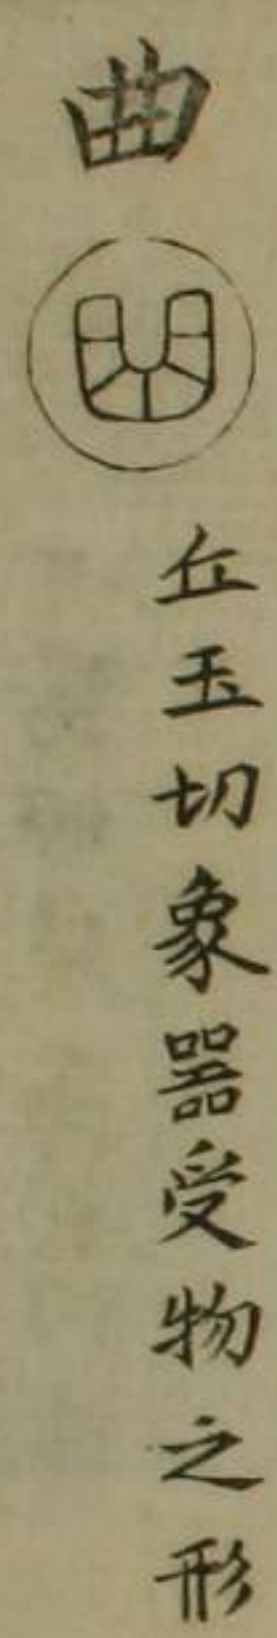 曲
丘玉切象器受物之形